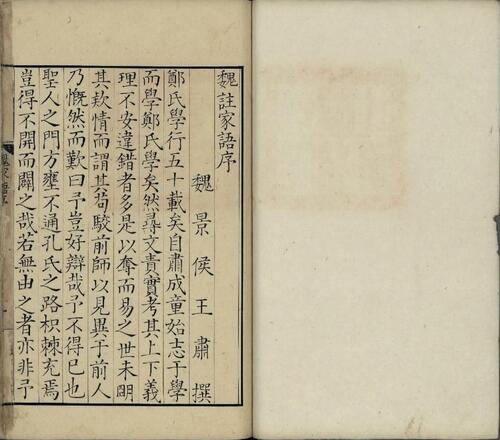 魏註家語序
魏景侯王肅撰
鄭氏學行五十載矣自肅成童始志于學
而學鄭氏學矣然尋文責實考其上下義
理不安違錯者多是以奪而易之世未明
其欵情而謂其茍駮前師以見異于前人
乃慨然而歎曰予豈好辯哉予不得已也
聖人之門方壅不通孔氏之路枳棘充焉
豈得不開而闢之哉若無由之者亦非予